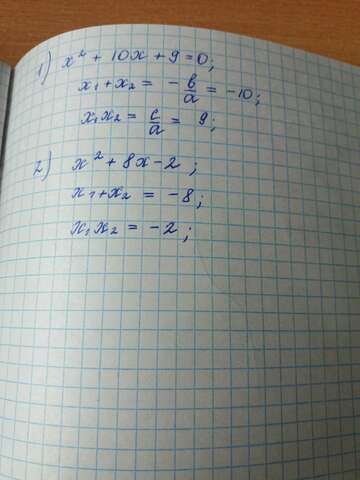 1) x² + 10x + 9 = 0;
x₁ + x₂ = - b/a = -10;
x₁x₂ = c/a = 9;
2) x² + 8x - 2;
x₁ + x₂ = -8;
x₁x₂ = -2;